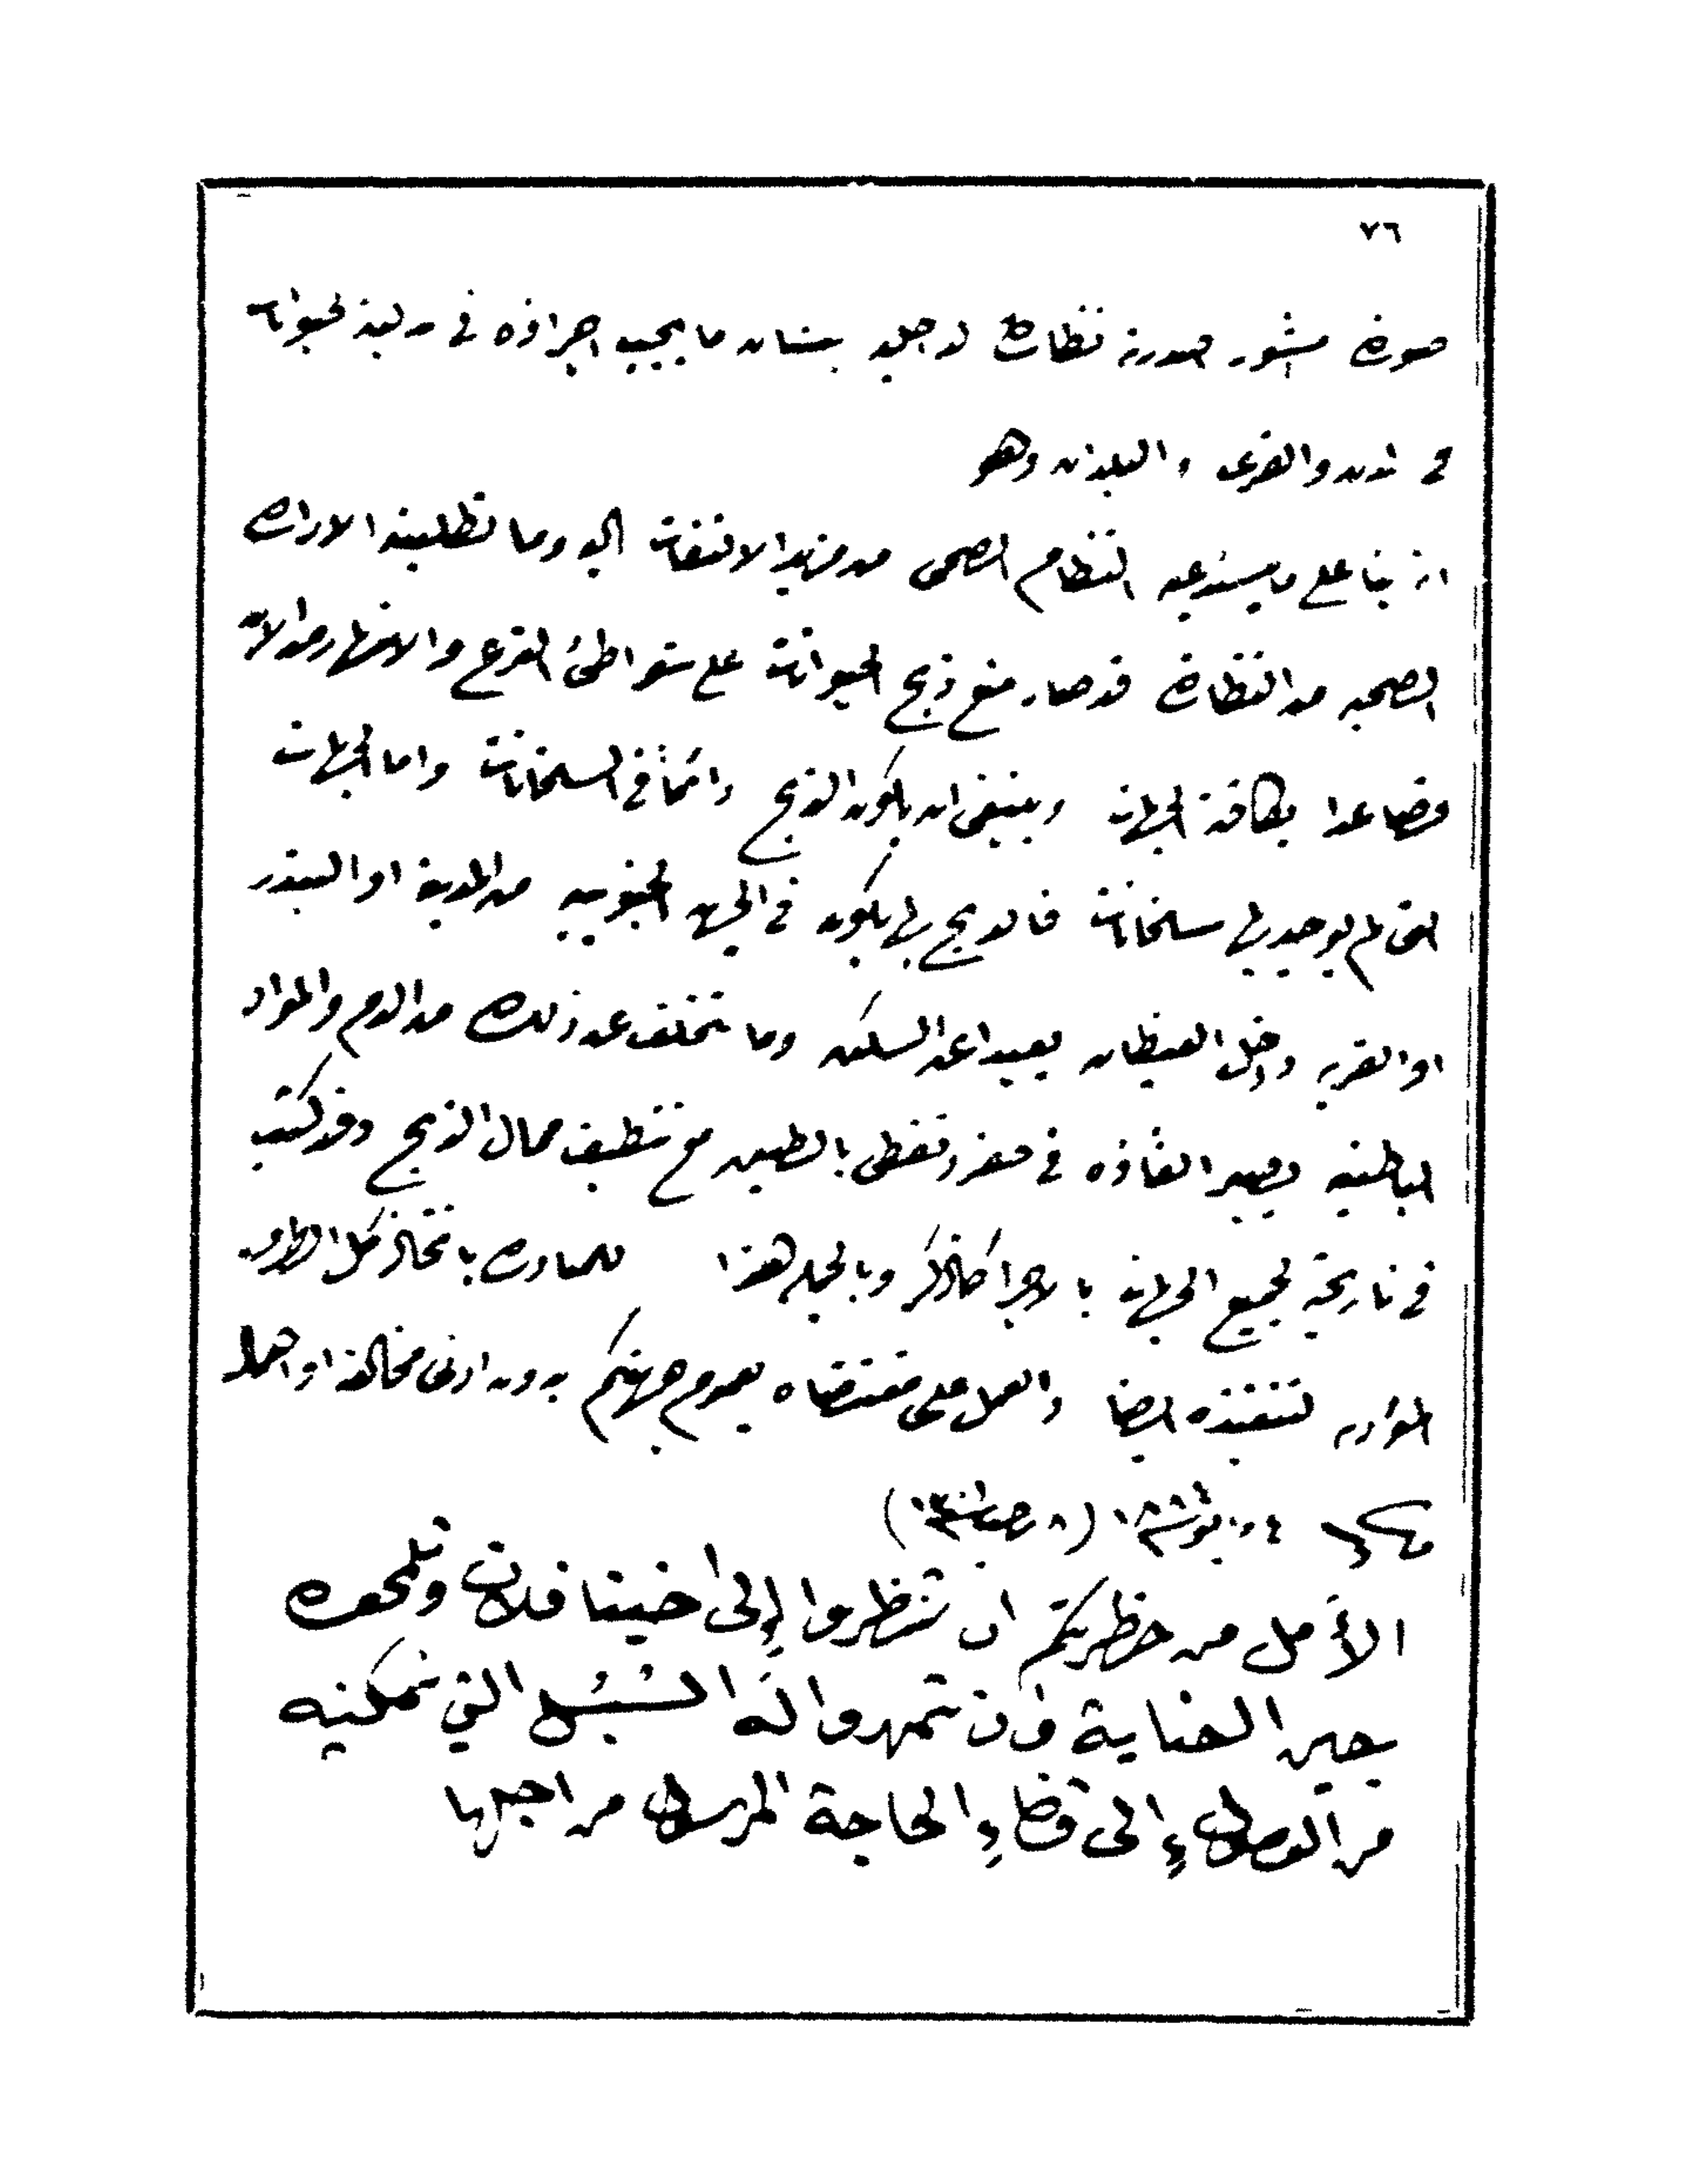 ٧٦
صورة منشور صدر من نظارة الداخلية بشأن ما يجب اجراؤه في الحيوانات
في المدن والقرى والبلدان وهو
انه بنا على ما يستدعيه النظام الصحى من مزيد الالتفات اليه وما تطلبته الادارة
الصحيه من النظارة قد صار منع ذبح الحيوانات على شواطئ الترع والانهار من الآن
فصاعدا بكافة الجهات وينبغى ان يكون الذبح دائما في السلخانات واما الجهات
التى لم يوجد بها سلخانات فالذبح بها يكون في الجهة الجنوبيه من المدينة او البندر
او القريه داخل الغيطان بعيدا عن السكن وما يتخلف عن ذلك من الدم والمواد
الباطنيه يصير القاؤه في حفر وتغطى بالطين مع تنظيف محال الذبح وقد كتب
في تاريخه لجميع الجهات بالاجرا كما ذكر وبالجمله هذا للمبادرة باتخاذ كل الطرق
المؤديه لتنفيذه ايضا والعمل على مقتضاه بعموم جهتكم بدون ادنى مخالفة او اهمال
الأمل من حظرتكم ان تنظروا إلى اخينا فلان وتلمحوه
بعين العناية وان تمهدوا له السُبُل التي تمكنه
من الوصول إلى قضاءِ الحاجة المرسل من اجلها